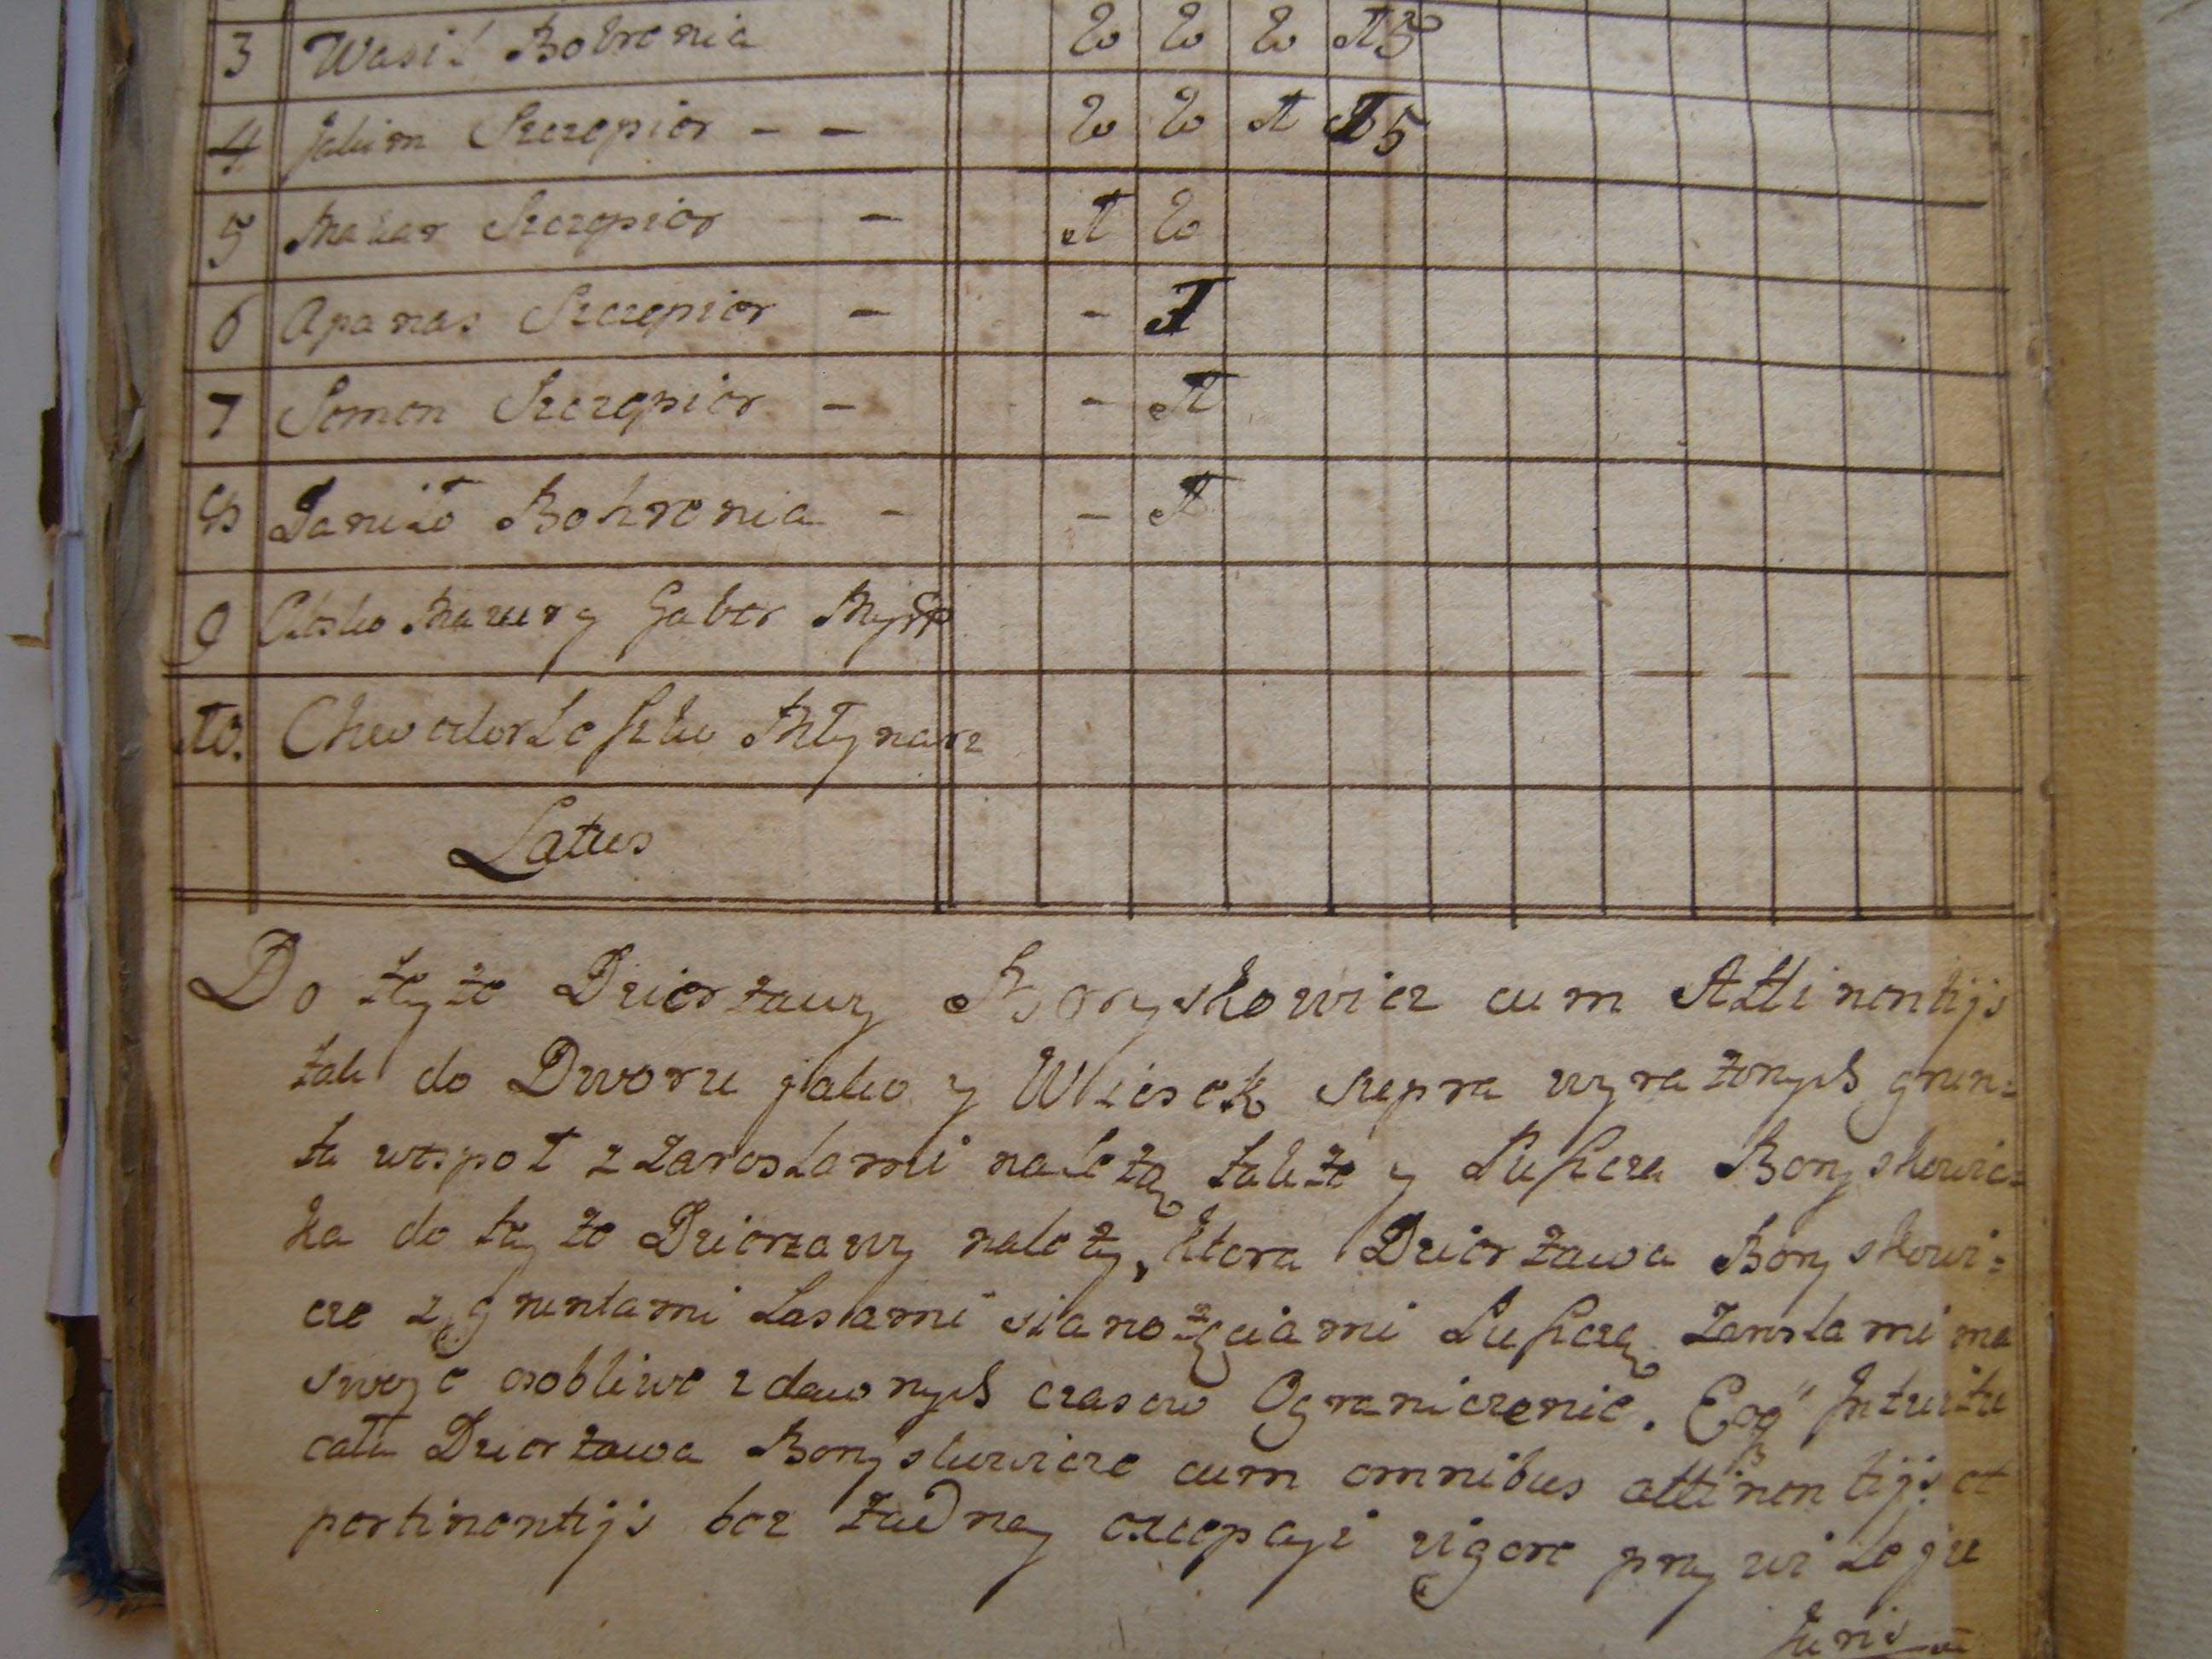 3 Wasil Bohrenia 2 2 2 13
4 Jakim Szczepior - - 2 2 1 15
5 Makar Szczepior - 1 2
6 Apanas Szczepior - - 1
7 Semen Szczepior - - 1
8 Daniło Bohrenia - - 1
9 Mazur y Gaber
10. Chwedor Leszko Młynarz
Latus
Do teyże Dzierżawy Boryskowicz cum Attinentijs
tak do Dworu jako y Wiosek supra wyrażonych grun=
ta wespoł z zaroslami należą także y Puszcza Boryskowic=
ka do teyże Dzierżawy należy, ktora Dzierżawa Boryskowi=
cze z gruntami Lasami sianożęciami Puszczą Zaroslami ma
swoje osobliwe z dawnych czasow Ograniczenie. Intuitu
cała Dzierżawa Boryskowicze cum omnibus attinentijs et
pertinentijs bez żadney excepcyi vigore przywileju
Juris